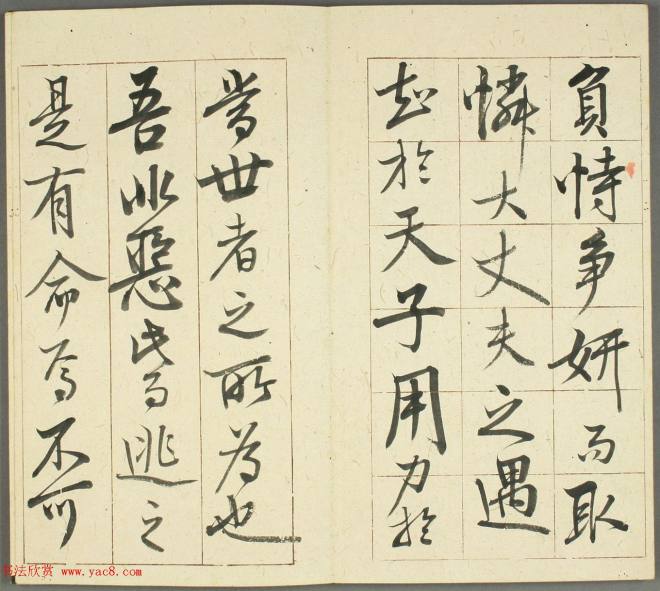 負恃争妍而取
憐大丈夫之遇
知於天子用力於
當世者之所為也
吾非惡此而逃之
是有命焉不可
书法欣赏 www.yac8.com